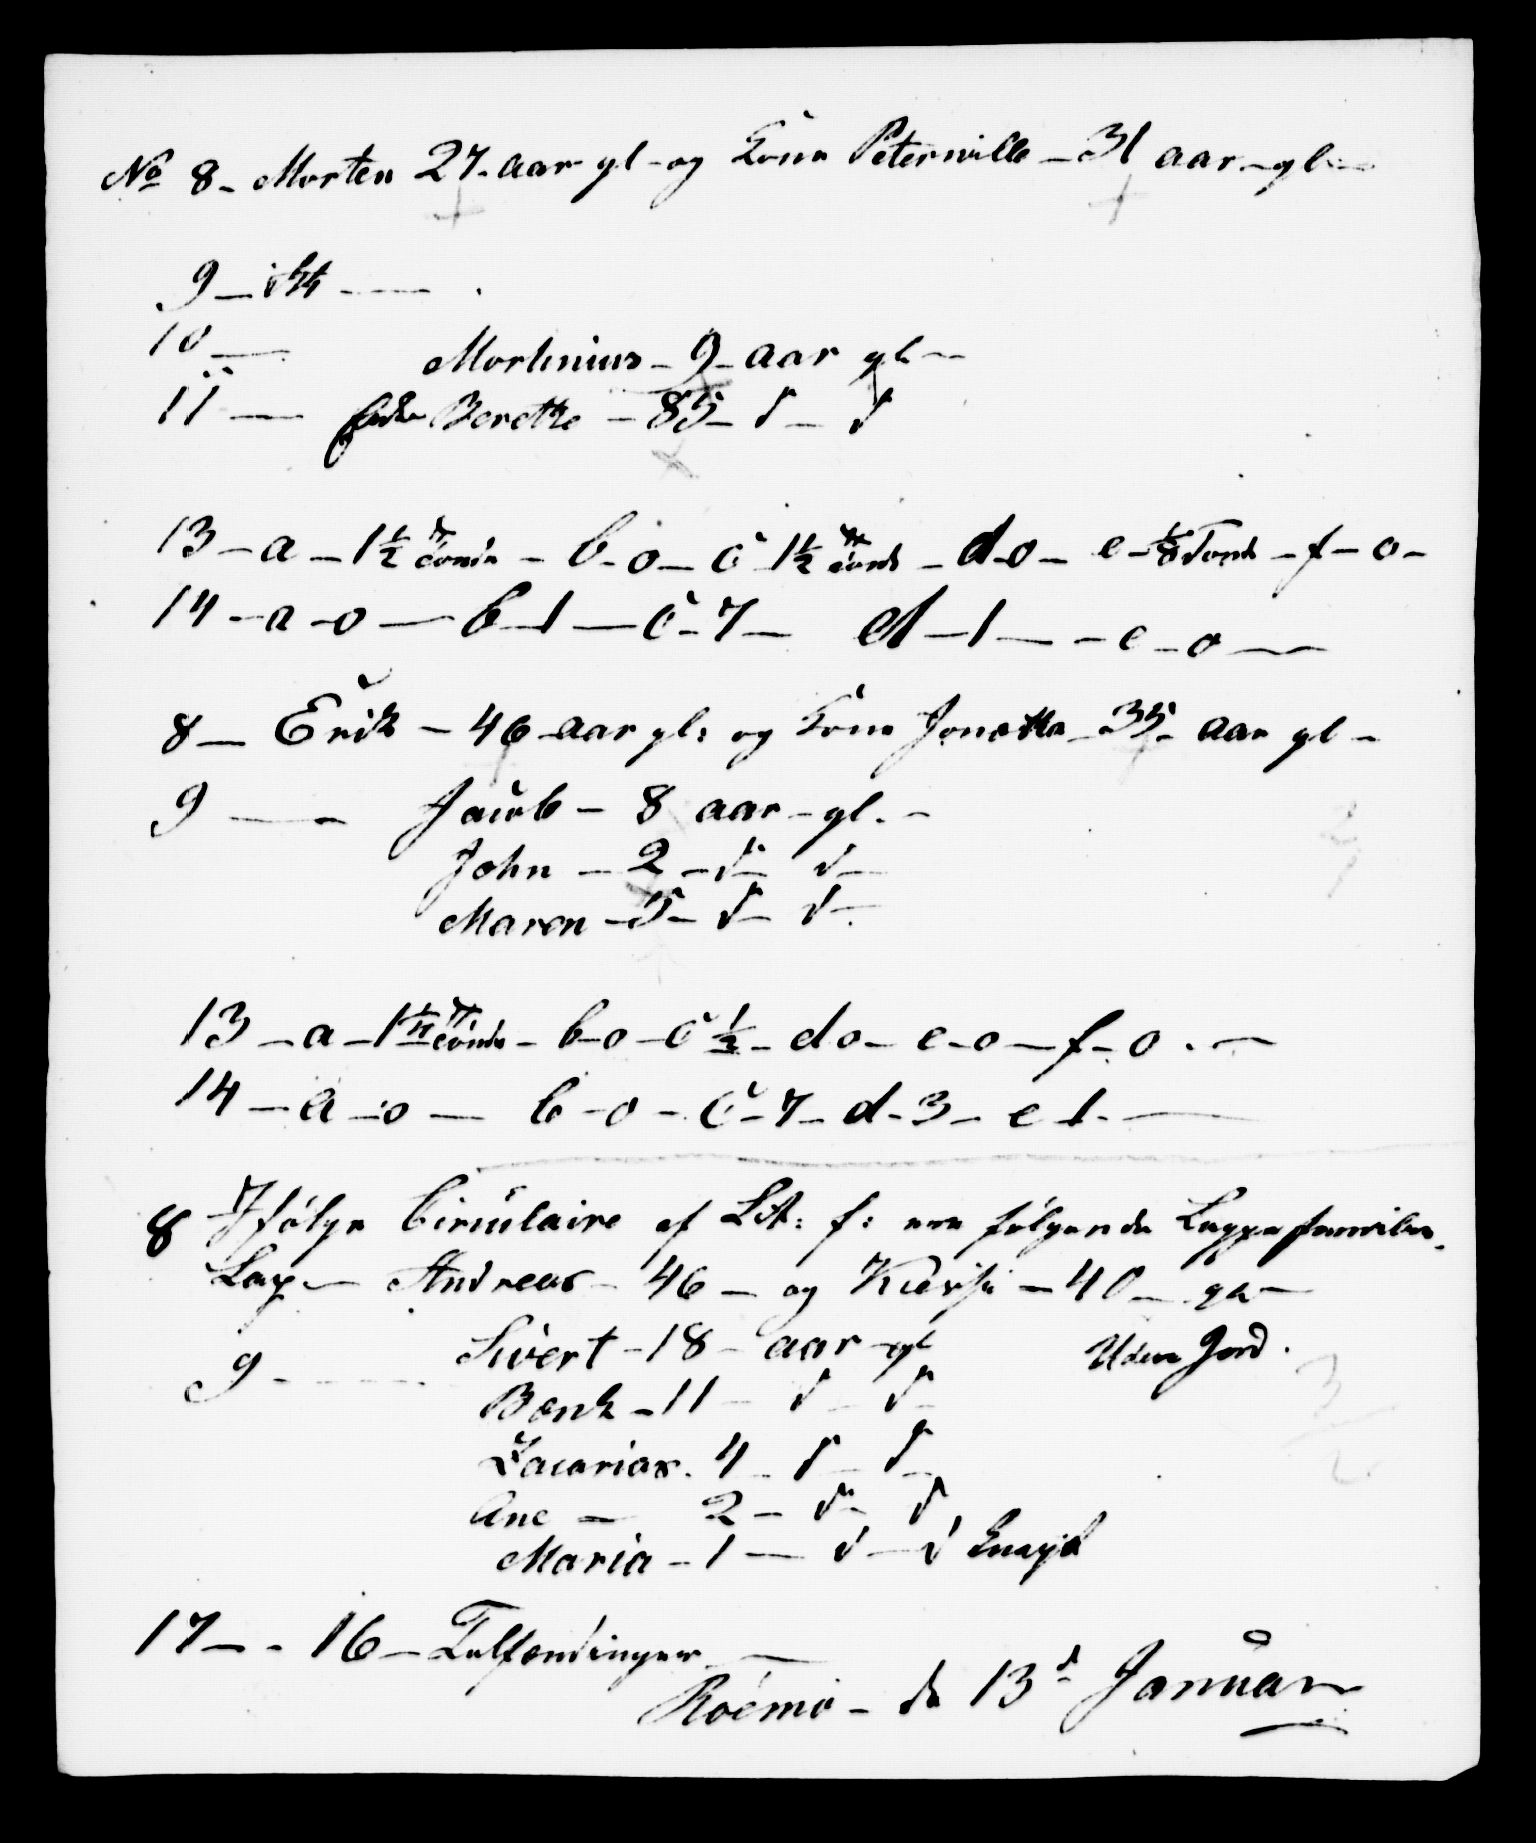 No 8 - Morten 27 - aar gl - og Kone Peternille - 31 aar - gl -
9 - itt -
10 - Mortinius - 9 - aar gl -
11 - Enke Berethe - 85 - d - d
13 - a - 1 1/2 Tønde - b - o - c 1 1/2 Tønde - d - o - e - 1/8 Tønde - f - o -
14 - a - o - b - 1 - c - 7 - d - 1 - e - o -
8 - Erik - 46 aar gl: og Kone Jonetta - 35 - aar gl -
9 - Jacob - 8 aar - gl. -
John - 2 - d - d -
Maren - 5 - d - d -
13 - a - 1 1/4 Tønde - b - o - c 1/2 - d o - e - o - f - o . -
14 - a - o - b - o - c - 7 - d - 3 - e 1 . -
8 Ifølge Circulaire af Litt: f: ere følgende Lappefamilier.
Lap - Andreas - 46 - og Kirsti - 40 - ga -
9 - Sivert - 18 - aar - gl Uden Jord .
Benk - 11 - d - d -
Zacarias . 4 - d - d -
Ane - 2 - d - d
Maria - 1 - d - d
17 - - 16 - Tolfendinger -
Roëmo - de 13d Januar